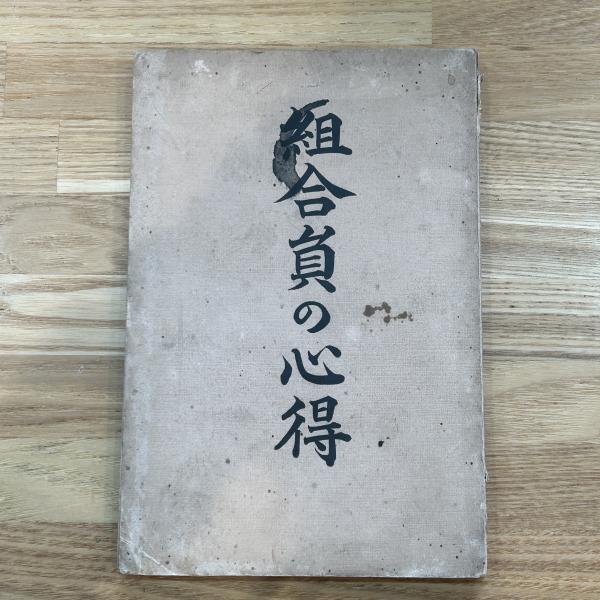 組合員の心得